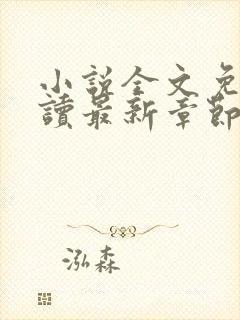 小說全文免
讀最新章節
泓森